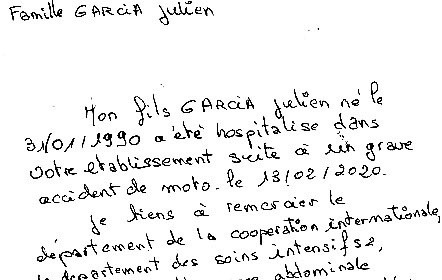 Famille GARCIA Julien
Mon fils GARCIA Julien né le
31/01/1990 a été hospitalise dans
votre etablissement suite à un grave
accident de moto. le 13/02/2020.
Je tiens à remercier le
département de la cooperation internationale,
département des soins intensifs2,
abdominale